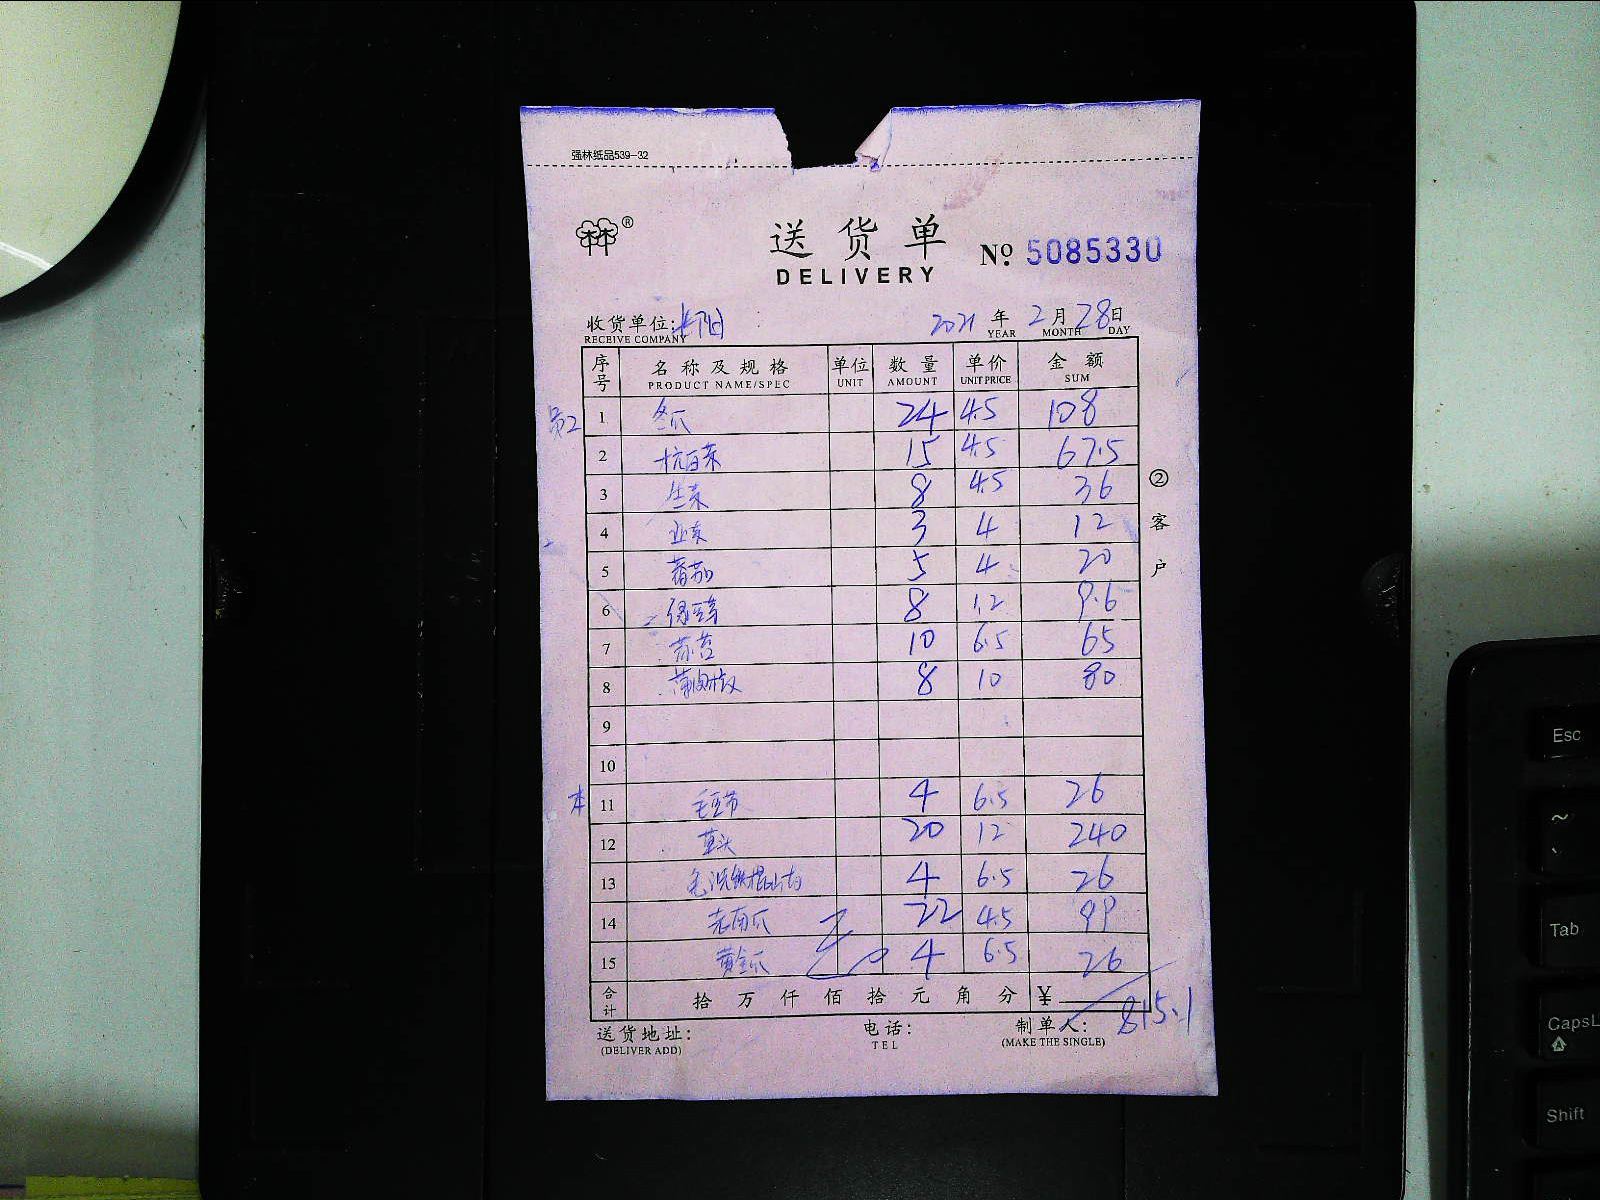 强林纸品539-32
林®
送货单
DELIVERY
No. 5085330
收货单位: 2021年2月28日
RECEIVE COMPANY YEAR MONTH DAY
序号 名称及规格 单位 数量 单价 金额
PRODUCT NAME/SPEC UNIT AMOUNT UNIT PRICE SUM
1 冬瓜 24 4.5 108
2 杭白菜 15 4.5 67.5
3 生菜 8 4.5 36
4 韭菜 3 4 12
5 番茄 5 4 20
6 绿豆芽 8 1.2 9.6
7 蒜苔 10 6.5 65
8 薄肉椒 8 10 80
9
10
本 11 毛豆节 4 6.5 26
12 草头 20 12 240
13 毛 铁棍山药 4 6.5 26
14 老南瓜 22 4.5 99
15 黄金瓜 4 6.5 26
合计 拾万仟佰拾元角分 ¥ 815.1
送货地址: 电话: 制单人:
(DELIVER ADD) TEL (MAKE THE SINGLE)
②客户
Esc
~
Tab
CapsL
Shift